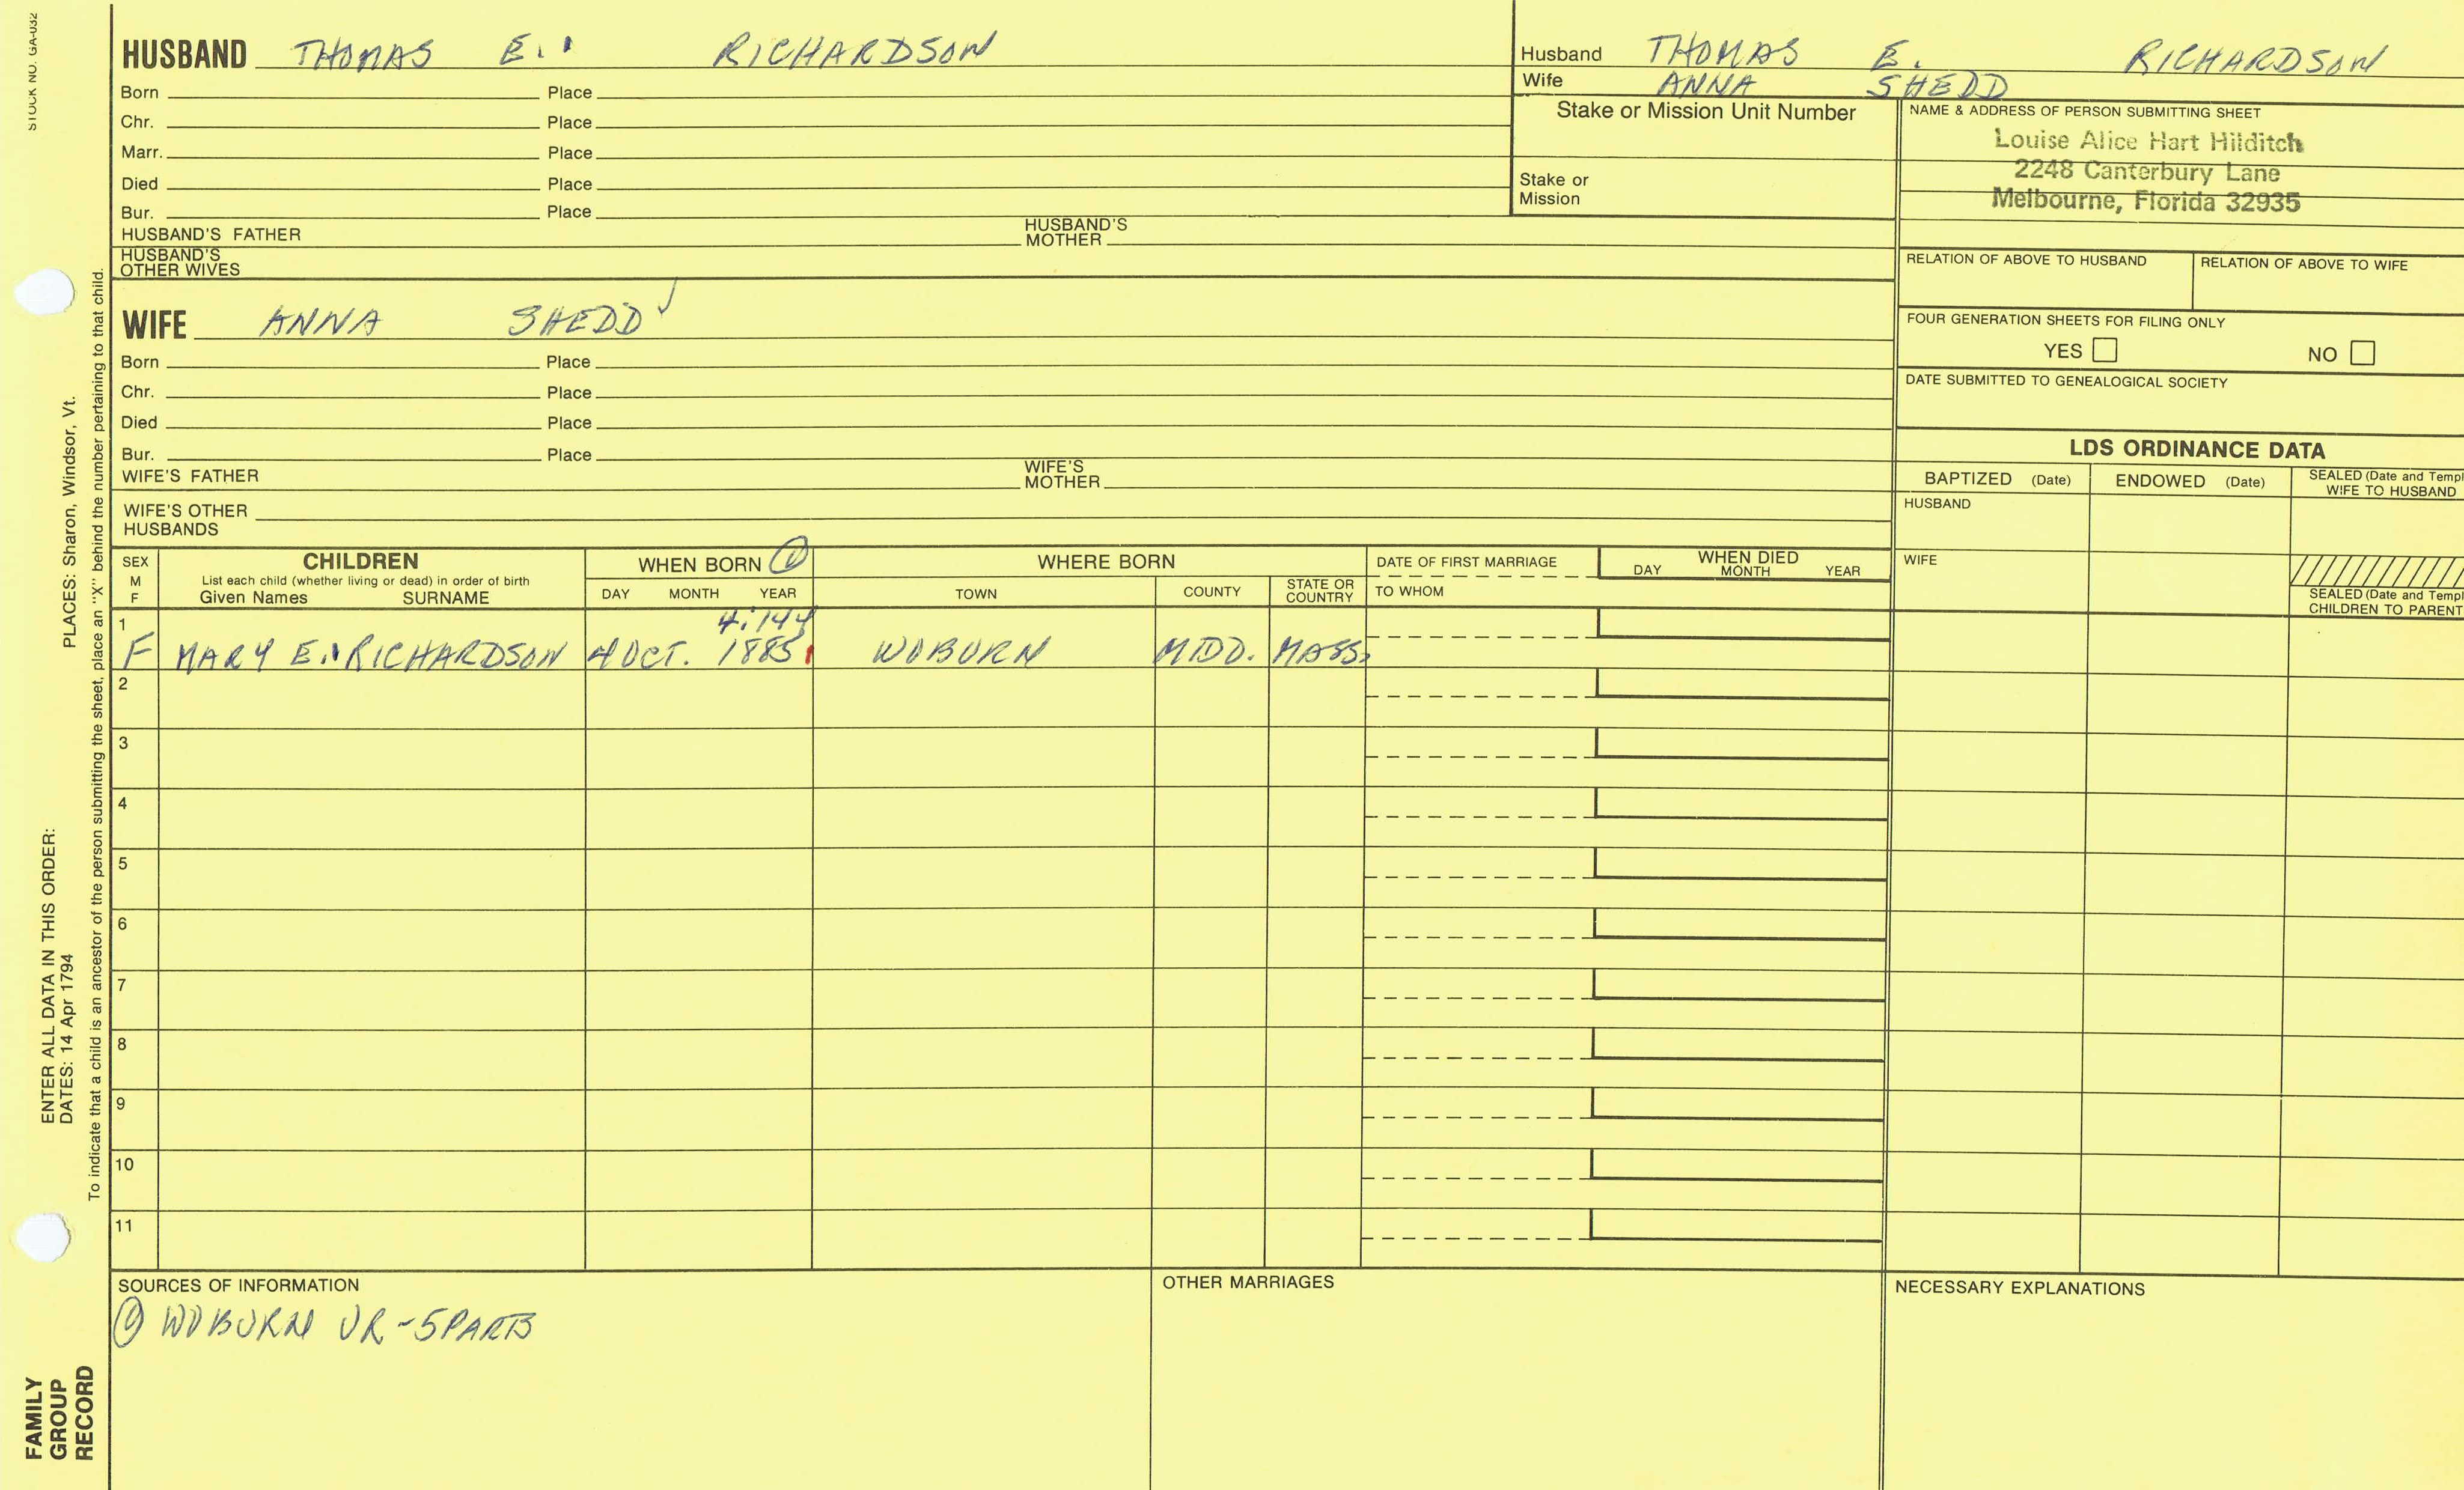 STOCK NO. GA-032
HUSBAND THOMAS E. RICHARDSON
Born Place
Chr. Place
Marr. Place
Died Place
Bur. Place
HUSBAND'S FATHER HUSBAND'S MOTHER
HUSBAND'S OTHER WIVES
Husband THOMAS E. RICHARDSON
Wife ANNA SHEDD
Stake or Mission Unit Number
Stake or
Mission
NAME & ADDRESS OF PERSON SUBMITTING SHEET
Louise Alice Hart Hilditch
2248 Canterbury Lane
Melbourne, Florida 32935
RELATION OF ABOVE TO HUSBAND RELATION OF ABOVE TO WIFE
FOUR GENERATION SHEETS FOR FILING ONLY
YES NO
DATE SUBMITTED TO GENEALOGICAL SOCIETY
WIFE ANNA SHEDD
Born Place
Chr. Place
Died Place
Bur. Place
WIFE'S FATHER WIFE'S MOTHER
WIFE'S OTHER
HUSBANDS
LDS ORDINANCE DATA
BAPTIZED (Date) ENDOWED (Date) SEALED (Date and Templ
WIFE TO HUSBAND
HUSBAND
WIFE
SEALED (Date and Templ
CHILDREN TO PARENT
SEX
M
F
CHILDREN
List each child (whether living or dead) in order of birth
Given Names SURNAME
WHEN BORN 1
DAY MONTH YEAR
WHERE BORN
TOWN COUNTY STATE OR COUNTRY
DATE OF FIRST MARRIAGE
TO WHOM
WHEN DIED
DAY MONTH YEAR
1
4:144
F MARY E. RICHARDSON 4 OCT. 1885 WOBURN MIDD. MASS.
2
3
4
5
6
7
8
9
10
11
SOURCES OF INFORMATION
1 WOBURN VR-5PARTS
OTHER MARRIAGES
NECESSARY EXPLANATIONS
ENTER ALL DATA IN THIS ORDER:
DATES: 14 Apr 1794 PLACES: Sharon, Windsor, Vt.
To indicate that a child is an ancestor of the person submitting the sheet, place an "X" behind the number pertaining to that child.
FAMILY
GROUP
RECORD